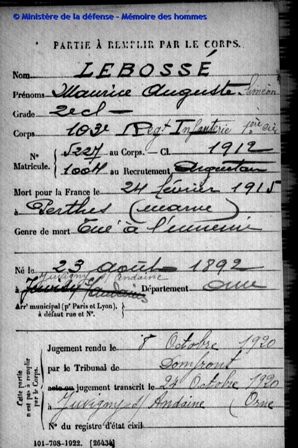 © Ministère de la défense - Mémoire des hommes
PARTIE À REMPLIR PAR LE CORPS.
Nom LEBOSSÉ
Prénoms Maurice Auguste Siméon
Grade 2e cl
Corps 103e Régt Infanterie
N° 5227 au Corps. — Cl. 1912
Matricule. 1004 au Recrutement Argentan
Mort pour la France le 24 février 1915
à Perthes (Marne)
Genre de mort Tué à l'ennemi
Né le 23 août 1892
Juvigny s/ Andaine
à Département Orne
Arrt municipal (pr Paris et Lyon),
à défaut rue et N°.
Cette partie
n'est pas à remplir
par le Corps.
Jugement rendu le 8 Octobre 1920
par le Tribunal de Domfront
jugement transcrit le 24 Octobre 1920
à Juvigny s/ Andaine (Orne)
N° du registre d'état civil
101-708-1922. [26434]